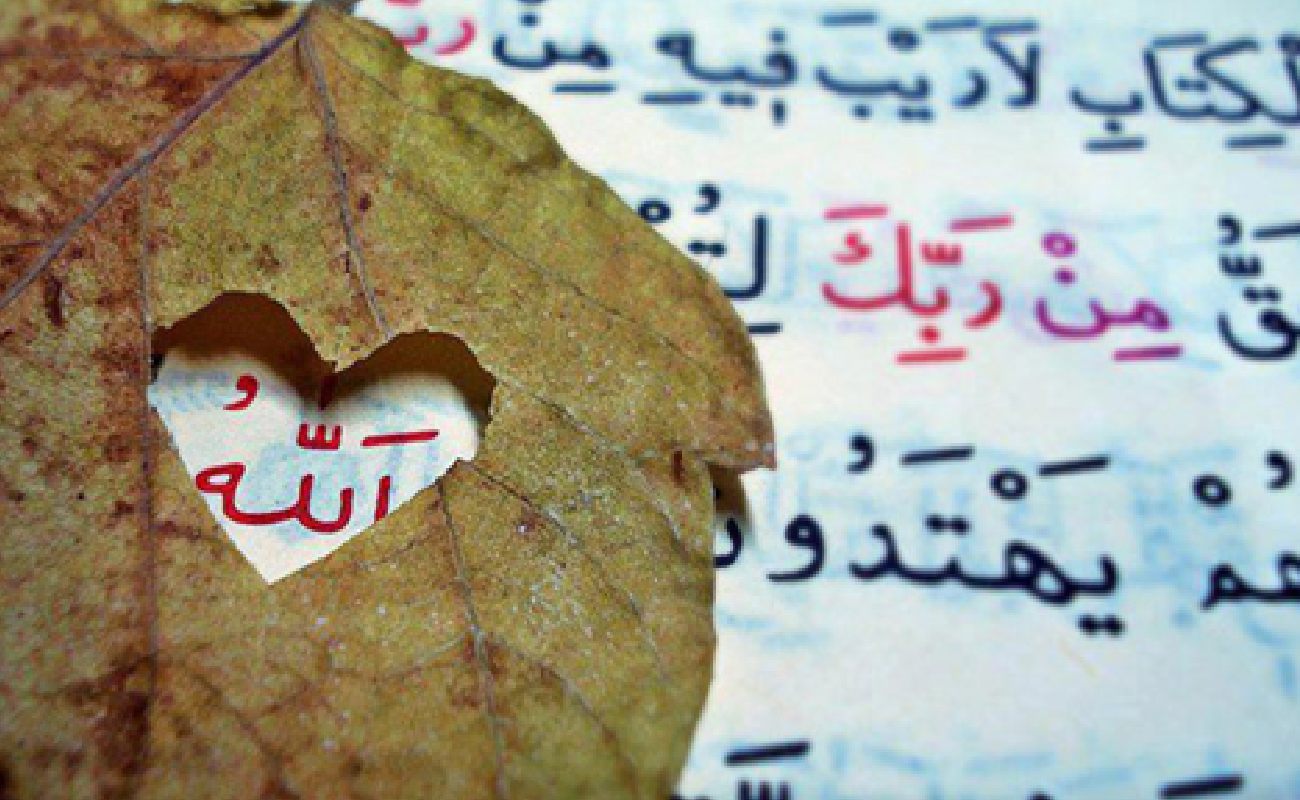 لْكِتَابِ لَارَيْبَ فِيهِ مِنْ
قُّ مِنْ رَبِّكَ لِتُ
هُمْ يَهْتَدُونَ
اَللّٰهُ